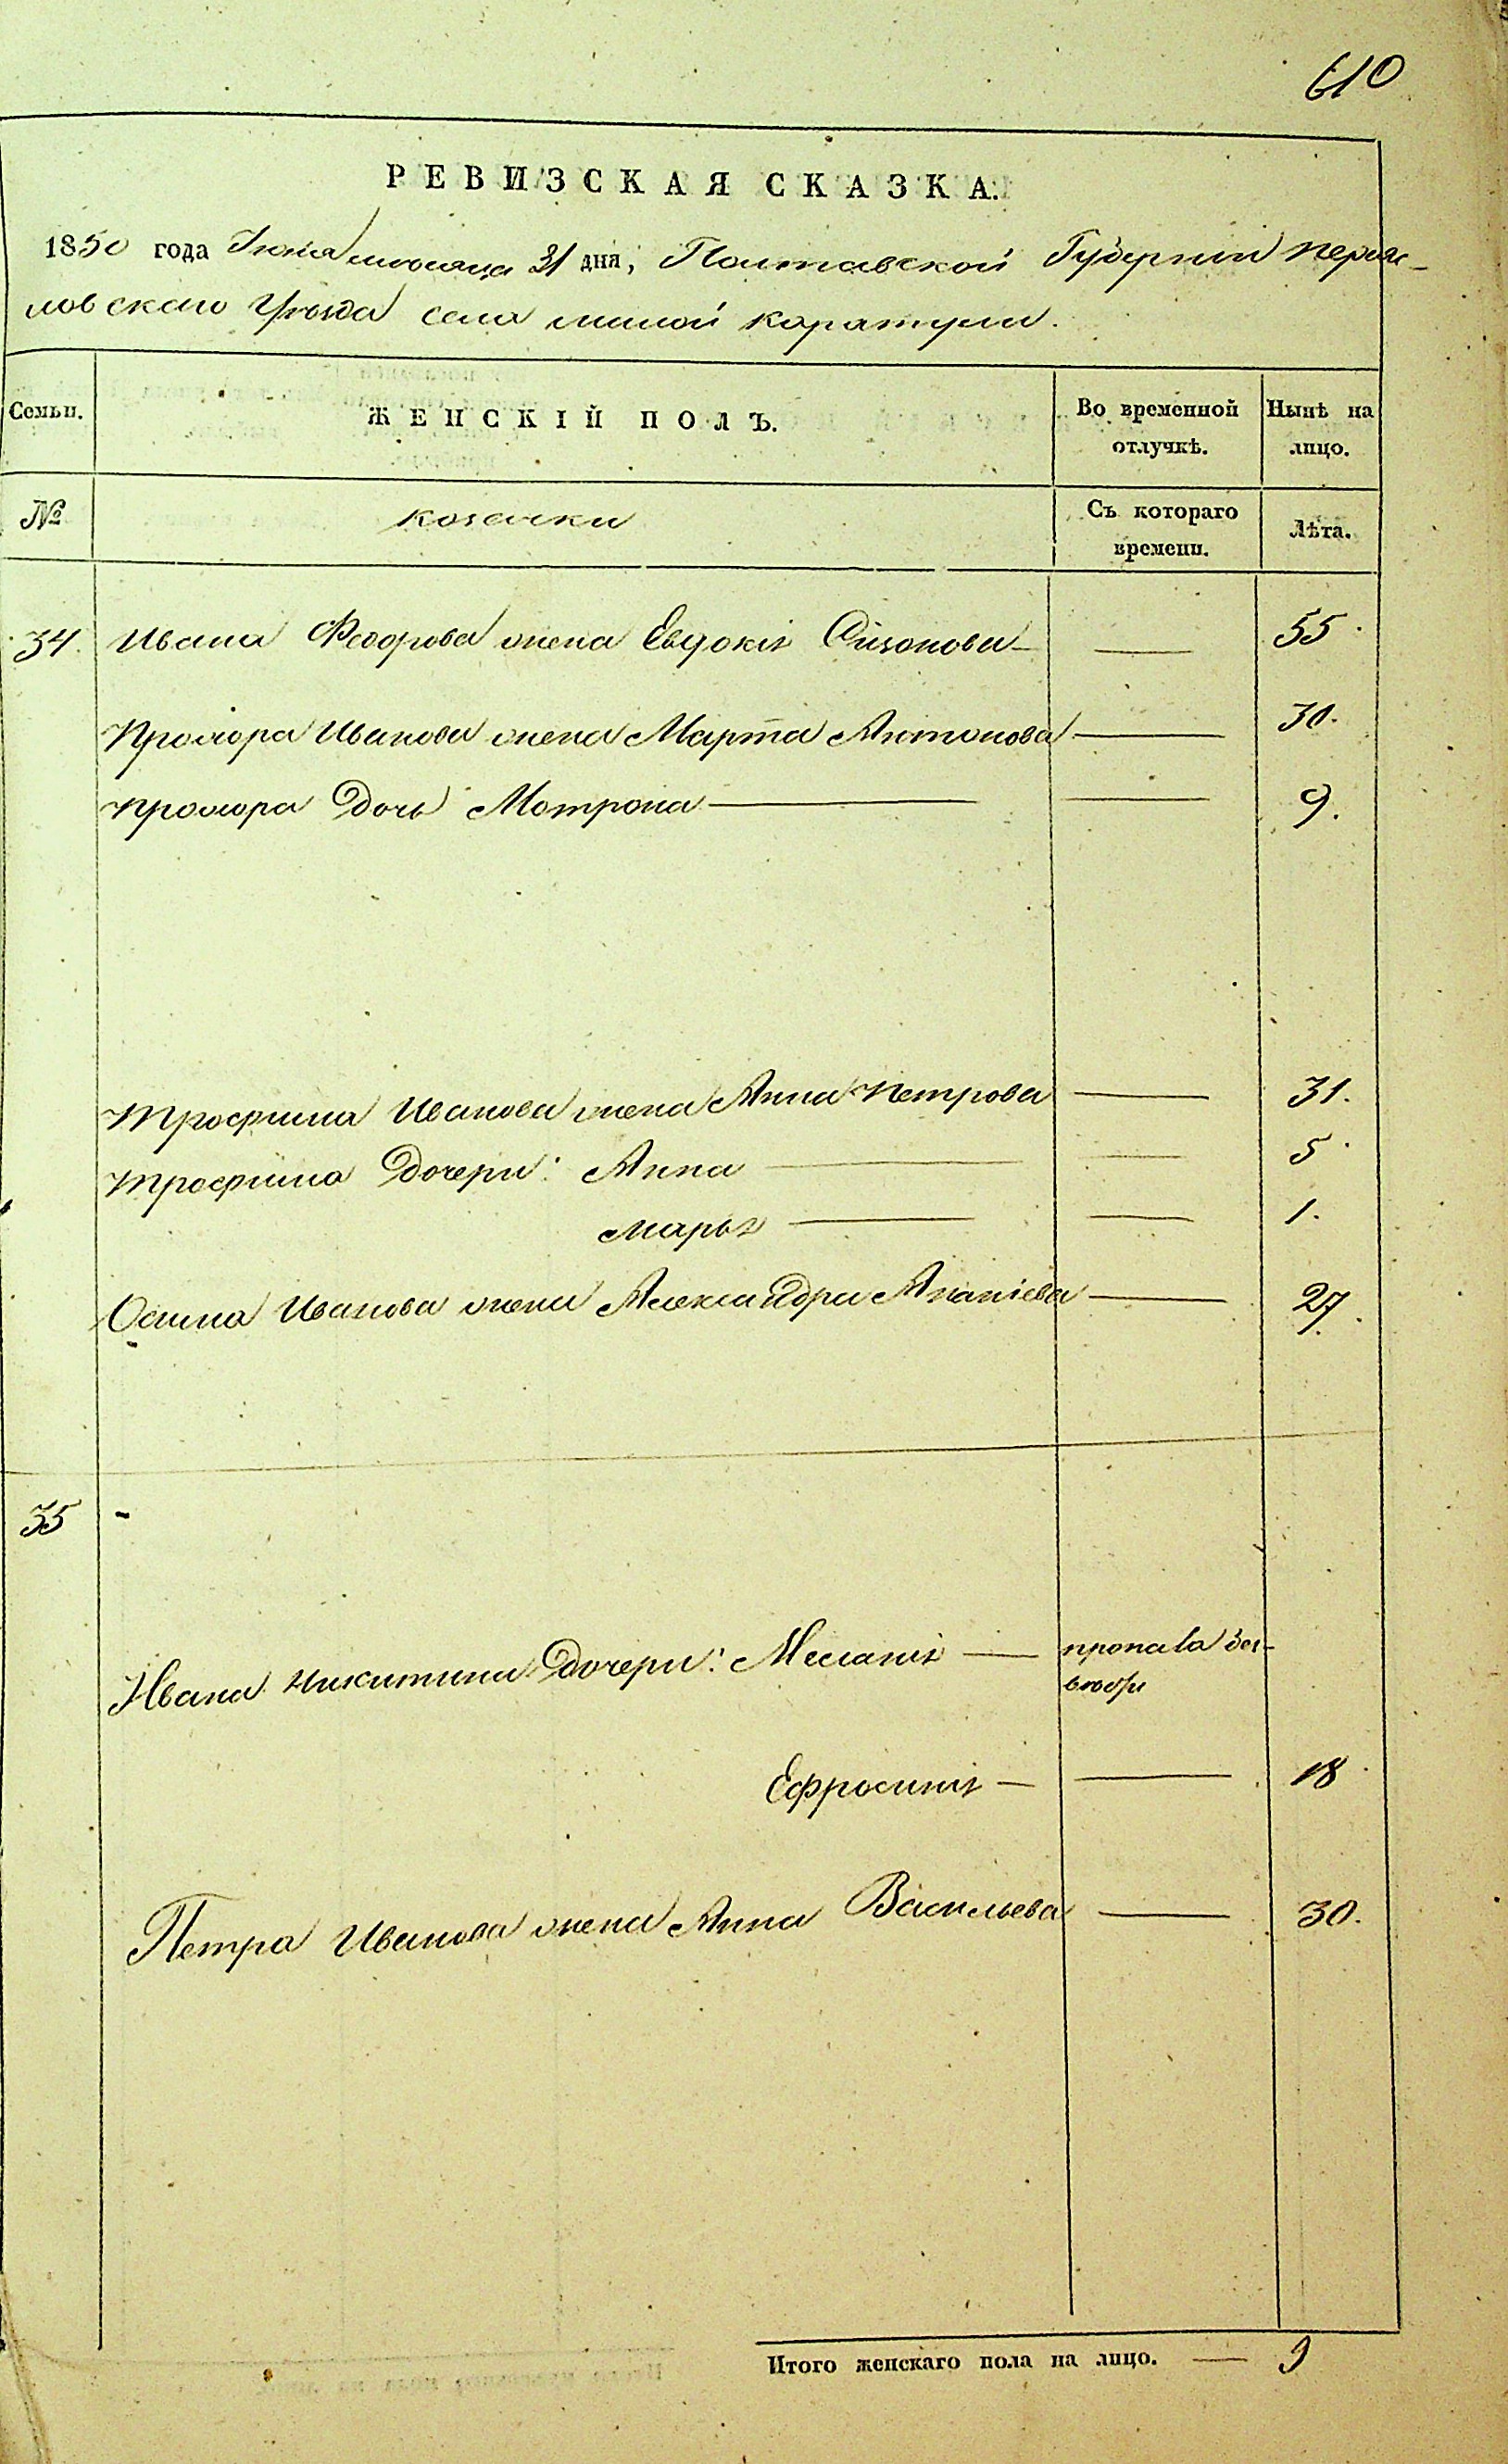 610
РЕВИЗСКАЯ СКАЗКА.
1850 года Июня месяца 31 дня, Полтавской Губерніи Переяс-
ловского Уезда села малой каратули.
Семьи. ЖЕНСКІЙ ПОЛЪ. Во временной отлучкѣ. Нынѣ на лицо.
№ козачки Съ котораго времени. Лѣта.
34. Ивана Федорова жена Евдокія — 55.
Прохора Иванова жена Марта Антонова — 30.
прохора Дочь Мотрона — — 9.
трофима Иванова жена Анна Петрова — 31.
трофима Дочери: Анна — — 5.
марья — — 1.
Осипа Иванова жена Александра Ананіева — 27.
35 -
Ивана никитина Дочери: Меланія — пропала без-
Ефросинія — — 18.
Петра Иванова жена Анна Васильева — 30.
Итого женскаго пола на лицо. — 9